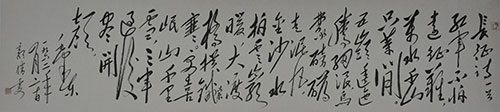 长征
红军不怕
远征难
万水千山
只等闲
五岭逶迤
腾细浪乌
蒙磅礴
走泥丸
金沙水
拍云崖
暖大渡
桥横铁
岷山千里
雪三军
过后
尽开
颜
毛泽东